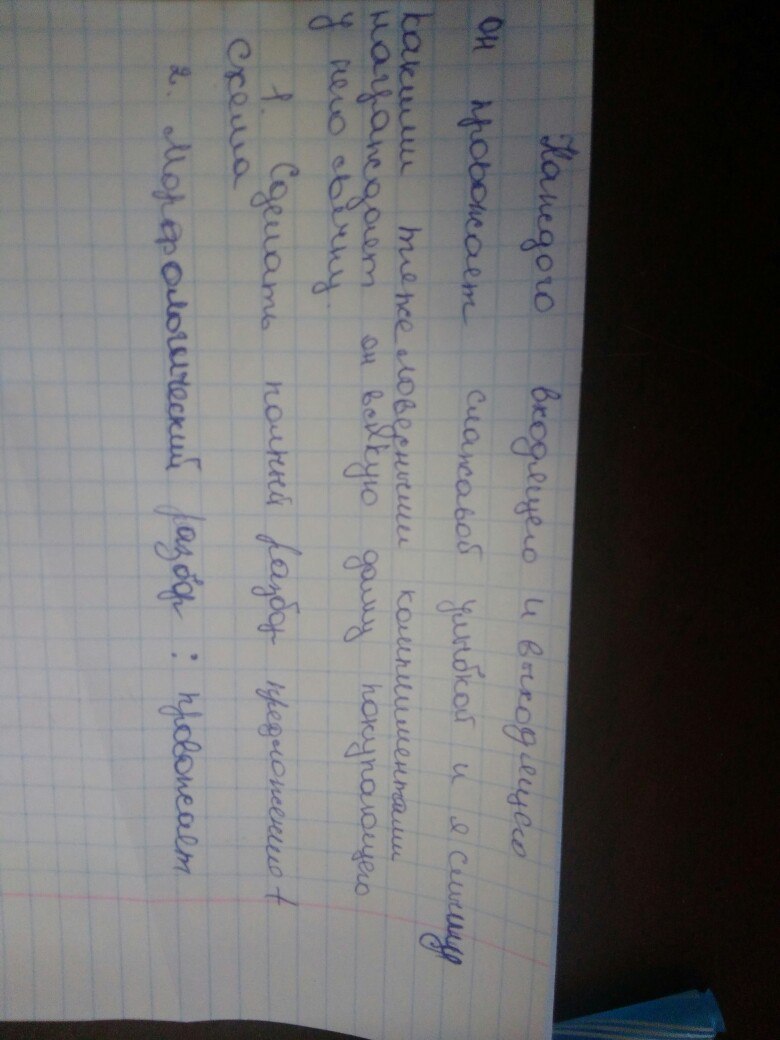 Каждого входящего и выходящего
он провожает слажавой улыбкой и я слышу
какими тяжеловесными комплиментами
награждает он всякую даму покупающего
у него свечку.
1. Сделать полный разбор предложение +
схема
2. Морфологический разбор : провожает